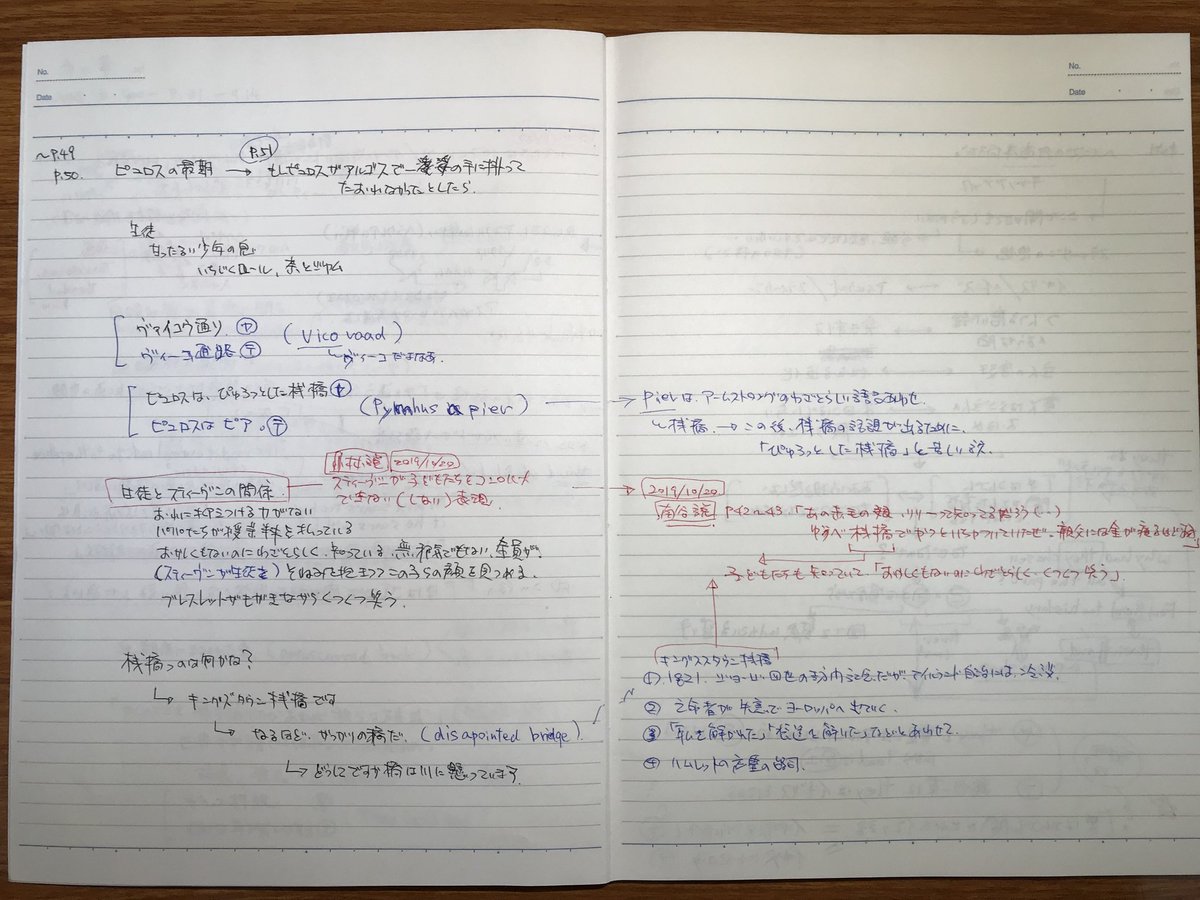 No.
Date
~P.49
P.50.
P.51
ピュロスの最期 → もしピュロスがアルゴスで一老婆の手に掛って
たおれなかったとしたら.
生徒
甘ったるい少年の息
いちじくロール,
ヴァイコウ通り.
ヴィーコ道路.
(Vico road)
ヴィーコだよなあ.
ピュロスは、ぴゅろっとした桟橋
ピュロスは ピア。
(Pyrrhus a pier)
生徒とスティーヴンの関係.
2019/10/20
スティーヴンが子どもたちをコントロール
できない(しない)表現.
おれに抑えつける力がない
パパたちが授業料を払っている
おかしくもないのにわざとらしく. 知っている. 無邪気でもない、全員が.
(スティーヴンが生徒を) そねみを抱きつつこの子らの顔を見つめる.
ブレスレットがもがきながらくつくつ笑う.
桟橋つのは何かな?
↳ キングズタウン桟橋です
↳ なるほど、がっかりの橋だ. (disapointed bridge)
↳ どうしてですか 橋は川に懸っています.
No.
Date
pier は、アームストロングのわざとらしい語呂あわせ.
↳ 桟橋. → この後、桟橋の話題が出るために、
「ぴゅろっとした桟橋」と苦しい訳.
2019/10/20
P.42~43. 「あの赤毛の娘、リリーって知ってるだろう(..)
ゆうべ桟橋でやつといちゃついていたぜ. 親父には金が腐るほど
子どもたちも知っていて、「おかしくもないのにわざとらしく、くつくつ笑う」.
キングズタウン桟橋
① 1821. ジョージ四世の
② 亡命者が失意でヨーロッパへ出ていく.
③
④ ハムレットの